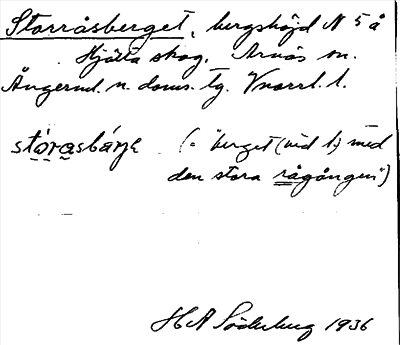 Storråsberget, bergshöjd N 5 å
Hjälta skog. Arnäs sn.
Ångerml. n. doms. tg. Vnorrl. l.
stórasbárje (= "berget (vid l.) med
den stora rågången")
HA Söderberg 1936